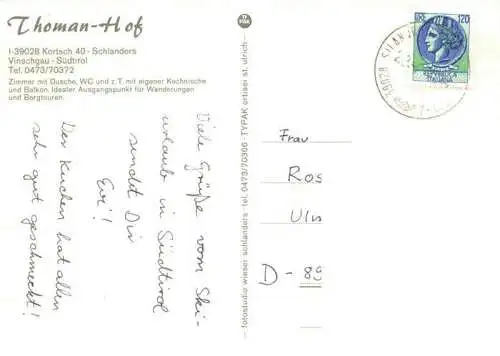 Thoman-Hof
I-39028 Kortsch 40 - Schlanders
Vinschgau - Südtirol
Tel. 0473/70372
Zimmer mit Dusche, WC und z.T. mit eigener Kochnische
und Balkon. Idealer Ausgangspunkt für Wanderungen
und Bergtouren.
Viele Grüße vom Ski-
urlaub in Südtirol
sendet Dir
Evi!
Der Kuchen hat allen
sehr gut geschmeckt!
— fotostudio wieser schlanders - tel. 0473/70306 - TYPAK ortisei st. ulrich —
TYPAK
LIRE 120
39028
Frau
Ros
Uln
D - 89